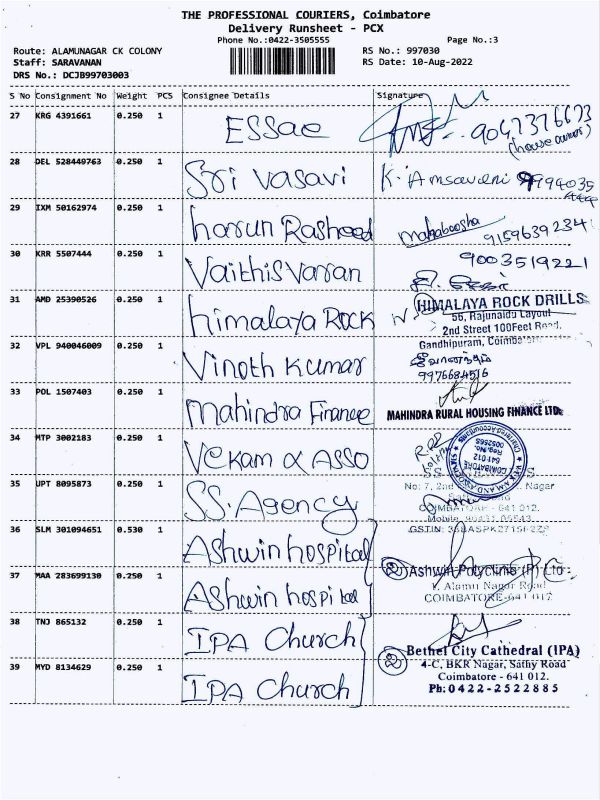 THE PROFESSIONAL COURIERS, Coimbatore
Delivery Runsheet - PCX
Phone No.:0422-3505555 Page No.:3
Route: ALAMUNAGAR CK COLONY RS No.: 997030
Staff: SARAVANAN RS Date: 10-Aug-2022
DRS No.: DCJB99703003
S No Consignment No Weight PCS Consignee Details Signature
27 KRG 4391661 0.250 1 ESSae 9047376673
(house owner)
28 DEL 528449763 0.250 1 Sri vasavi K. Amsaveni
29 IXM 50162974 0.250 1 harun Rasheed mahaboosha
9159639234
30 KRR 5507444 0.250 1 Vaithisvaran 9003519221
31 AMD 25390526 0.250 1 himalaya ROCK HIMALAYA ROCK DRILLS
56, Rajunaidu Layout
2nd Street 100Feet Road,
Gandhipuram,
32 VPL 940046009 0.250 1 Vinoth Kumar
9976684516
33 POL 1507403 0.250 1 Mahindra Finance MAHINDRA RURAL HOUSING FINANCE LTD.
34 MTP 3002183 0.250 1 Vekam & ASSO
COIMBATORE
641 012
35 UPT 8095873 0.250 1 SS. Agency No: 7, 2nd Nagar
COIMBATORE - 641 012.
36 SLM 301094651 0.530 1 Ashwin hospital GSTIN:
37 MAA 283699130 0.250 1 Ashwin hospital Ashwin Polyclinic (P) Ltd
1, Alamu Nagar Road
COIMBATORE-641 012
38 TNJ 865132 0.250 1 IPA Church
39 MYD 8134629 0.250 1 IPA Church Bethel City Cathedral (IPA)
4-C, BKR Nagar, Sathy Road
Coimbatore - 641 012.
Ph:0422-2522885